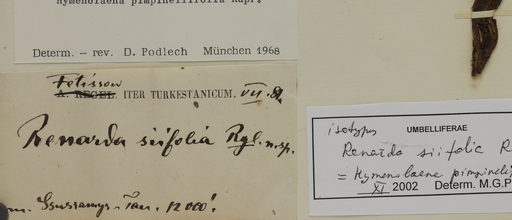 Hymenolaena pimpinellifolia Rupr.
Determ. – rev. D. Podlech München 1968
Fetissow
A. REGEL. ITER TURKESTANICUM. VII. 81.
Renarda siifolia Rgl. n. sp.
Sussamyr. 12 000'.
isotypus
UMBELLIFERAE
Renarda siifolia R
= Hymenolaena pimpinelli
XI 2002 Determ. M.G.P